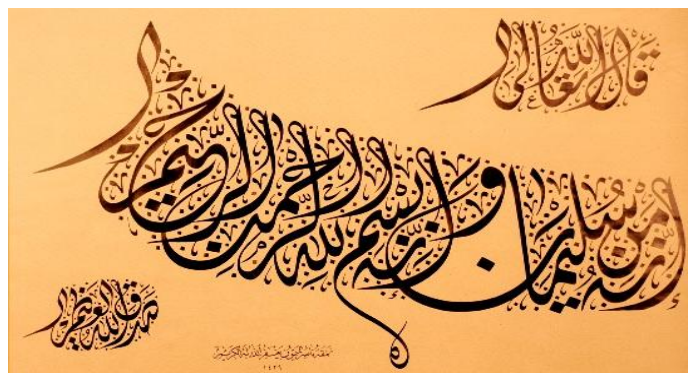 قال الله تعالى
إنه من سليمان وإنه بسم الله الرحمن الرحيم
صدق الله العظيم
١٤٢٦